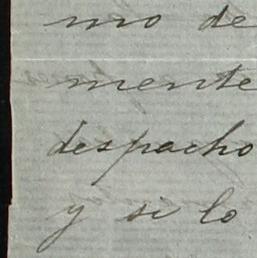 mo de
mente
despacho
y si lo